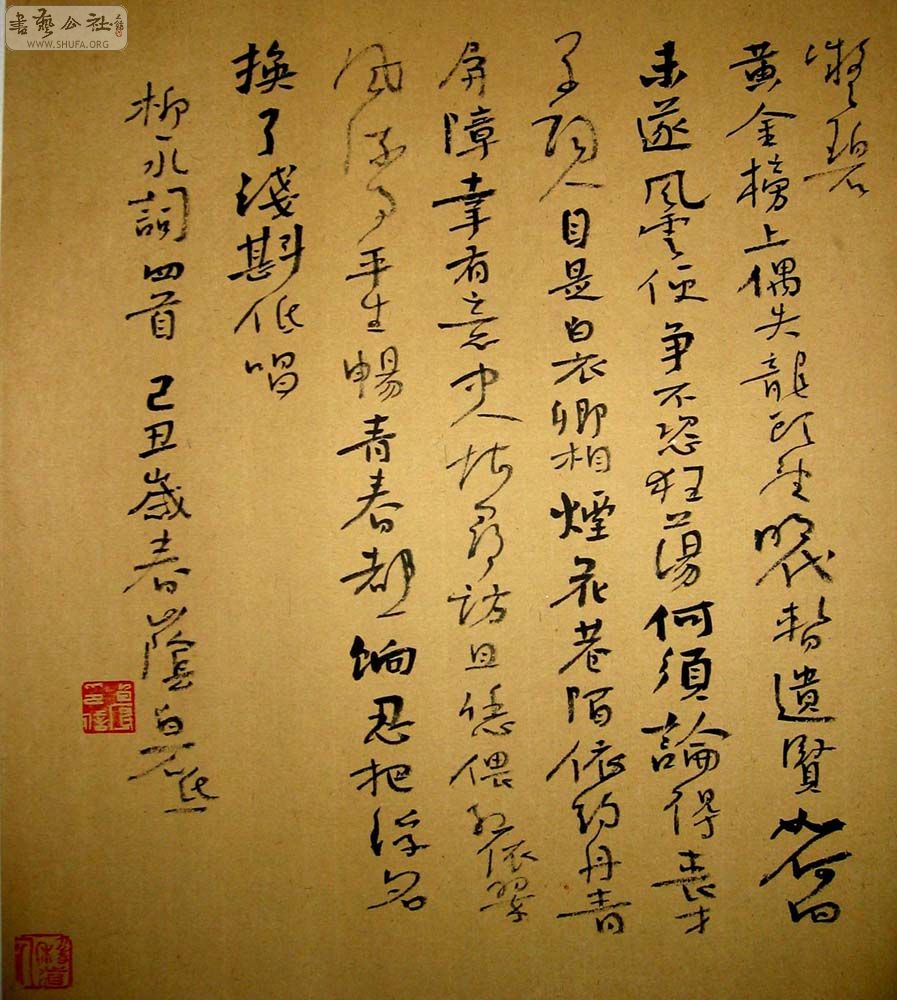 書藝公社
WWW.SHUFA.ORG
凝碧
黄金榜上偶失龍頭望明代暫遺賢如何向
未遂風雲便争不恣狂蕩何須論得喪才
子詞人自是白衣卿相煙花巷陌依約丹青
屏障幸有意中人堪尋訪且恁偎紅依翠
風流事平生暢青春都一餉忍把浮名
換了淺斟低唱
柳永詞四首 己丑歲春山蔭